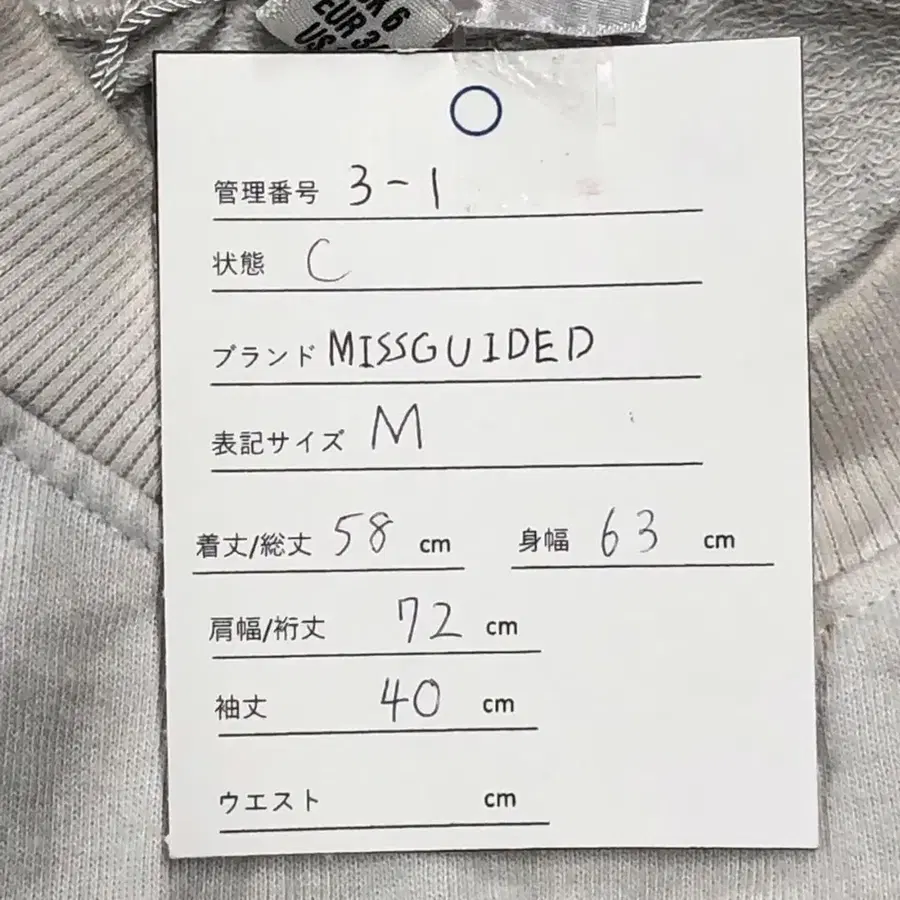 UK 6
EUR 3
US
管理番号 3-1
状態 C
ブランド MISSGUIDED
表記サイズ M
着丈/総丈 58 cm 身幅 63 cm
肩幅/裄丈 72 cm
袖丈 40 cm
ウエスト cm